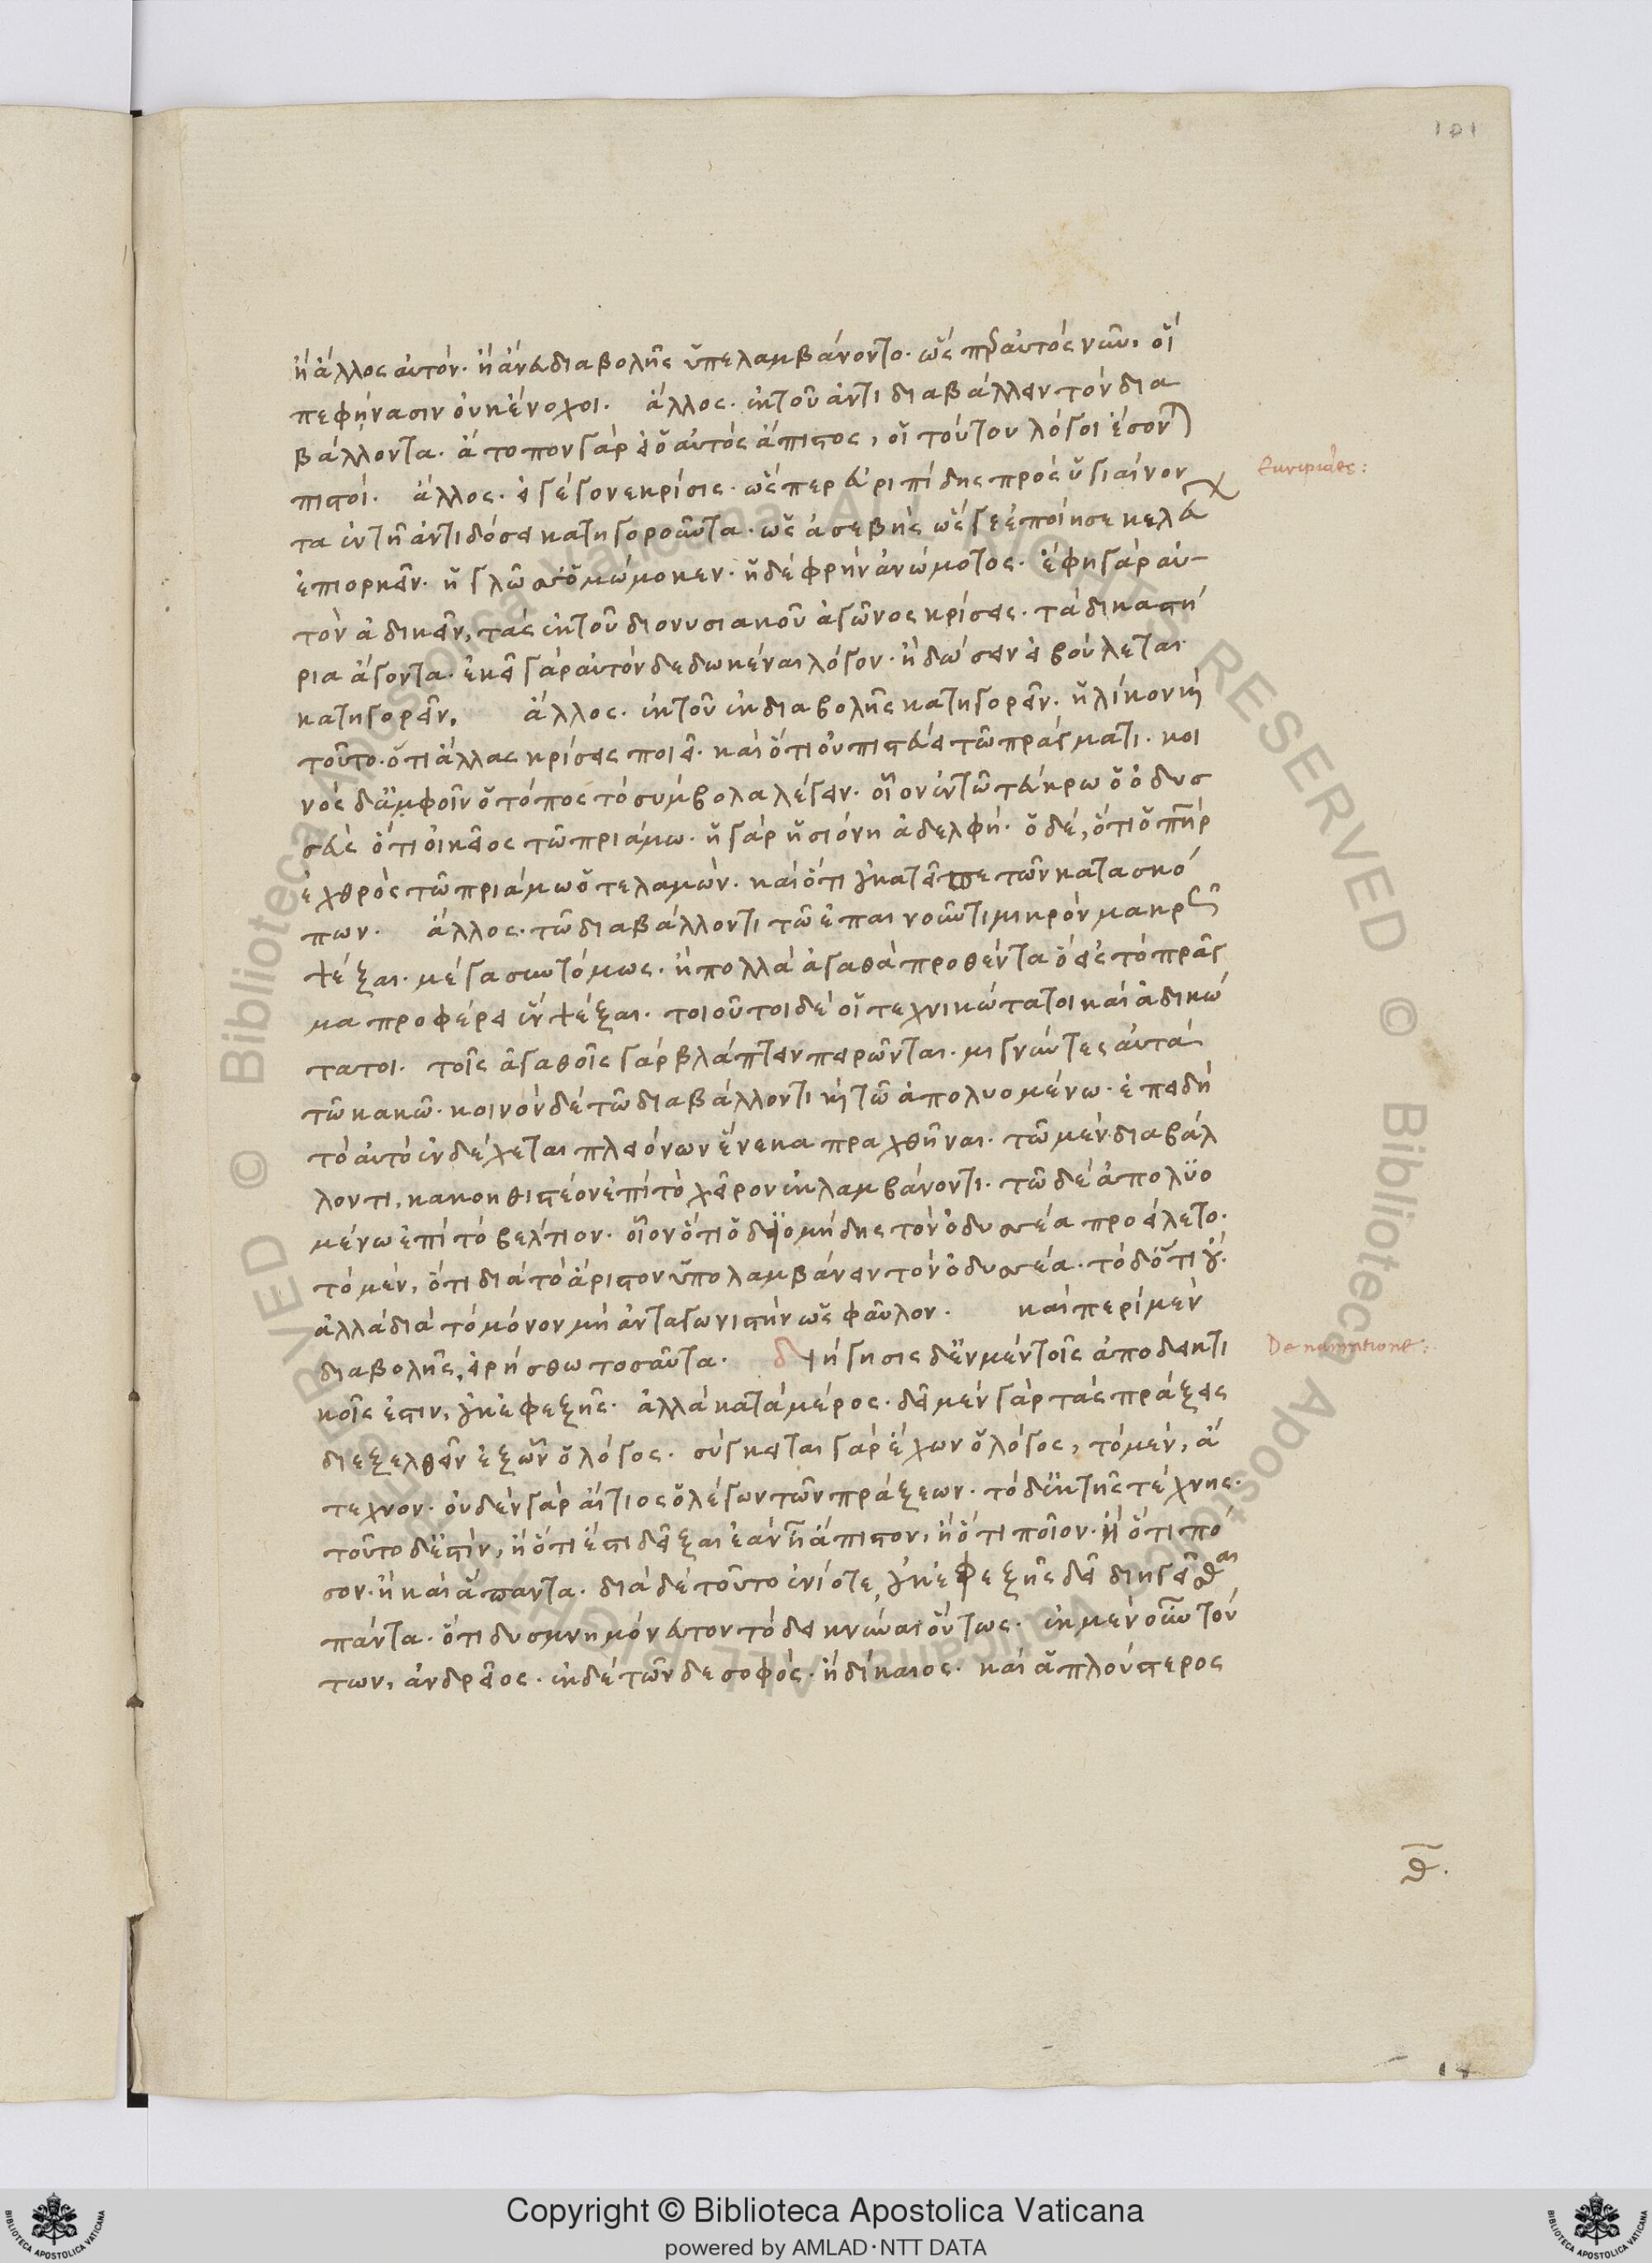 101
ἢ ἄλλος αὐτόν. ἢ ἄνευ διαβολῆς ὑπελαμβάνοντο. ὥσπερ αὐτὸς νῦν, οἳ
πεφήνασιν οὐκ ἔνοχοι. ἄλλος. ἐκ τοῦ ἀντιδιαβάλλειν τὸν δια
βάλλοντα. ἄτοπον γὰρ εἰ ὁ αὐτὸς ἄπιστος, οἱ τούτου λόγοι ἔσονται
πιστοί. ἄλλος. εἰ γέγονε κρίσις. ὥσπερ εὐριπίδης πρὸς ὑγιαίνον
Euripides:
τα ἐν τῇ ἀντιδόσει κατηγοροῦντα. ὡς ἀσεβὴς ὥς γε ἐποίησε κελεύ
ἐπιορκεῖν. ἡ γλῶσσ' ὀμώμοκεν. ἡ δὲ φρὴν ἀνώμοτος. ἔφη γὰρ αὐ-
τὸν ἀδικεῖν, τὰς ἐκ τοῦ διονυσιακοῦ ἀγῶνος κρίσεις. τὰ δικαστή
ρια ἄγοντα. ἐκεῖ γὰρ αὐτὸν δεδωκέναι λόγον. ἢ δώσειν εἰ βούλεται
κατηγορεῖν. ἄλλος. ἐκ τοῦ ἐκ διαβολῆς κατηγορεῖν. ἡλίκον καὶ
τοῦτο. ὅτι ἄλλας κρίσεις ποιεῖ. καὶ ὅτι οὐ πιστεύει τῷ πράγματι. κοι
νὸς δ' ἀμφοῖν ὁ τόπος τὸ σύμβολα λέγειν. οἷον ἐν τῷ τεύκρω ὁ ὀδυσ
σεὺς ὅτι οἰκεῖος τῷ πριάμω. ἡ γὰρ ἡσιόνη ἀδελφή. ὁ δέ, ὅτι ὁ πατὴρ
ἐχθρὸς τῷ πριάμω ὁ τελαμών. καὶ ὅτι οὐ κατεῖπε τῶν κατασκό
πων. ἄλλος. τῷ διαβάλλοντι τῷ ἐπαινοῦντι μικρὸν μακρῶς
ψέξαι. μέγα συντόμως. ἢ πολλὰ ἀγαθὰ προθέντα ὃ εἰς τὸ πρᾶγ
μα προφέρει ἓν ψέξαι. τοιοῦτοι δὲ οἱ τεχνικώτατοι καὶ ἀδικώ
τατοι. τοῖς ἀγαθοῖς γὰρ βλάπτειν πειρῶνται. μιγνύντες αὐτὰ
τῷ κακῷ. κοινὸν δὲ τῷ διαβάλλοντι καὶ τῷ ἀπολυομένω. ἐπειδὴ
τὸ αὐτὸ ἐνδέχεται πλειόνων ἕνεκα πραχθῆναι. τῷ μὲν διαβάλ
λοντι, κακοηθιστέον ἐπὶ τὸ χεῖρον ἐκλαμβάνοντι. τῷ δὲ ἀπολϋο
μένω ἐπὶ τὸ βέλτιον. οἷον ὅτι ὁ δϊομήδης τὸν ὀδυσσέα προείλετο.
τὸ μέν, ὅτι διὰ τὸ ἄριστον ὑπολαμβάνειν τὸν ὀδυσσέα. τὸ δ' ὅτι οὔ.
ἀλλὰ διὰ τὸ μόνον μὴ ἀνταγωνιστὴν ὡς φαῦλον. καὶ περὶ μὲν
διαβολῆς, εἰρήσθω τοσαῦτα. διήγησις δ' ἐν μὲν τοῖς ἀποδεικτι
De narratione:
κοῖς ἐστιν, οὐκ ἐφεξῆς. ἀλλὰ κατὰ μέρος. δεῖ μὲν γὰρ τὰς πράξεις
διεξελθεῖν ἐξ ὧν ὁ λόγος. σύγκειται γὰρ ἔχων ὁ λόγος, τὸ μέν, ἄ
τεχνον. οὐδὲν γὰρ αἴτιος ὁ λέγων τῶν πράξεων. τὸ δ' ἐκ τῆς τέχνης.
τοῦτο δ' ἐστίν, ἢ ὅτι ἔστι δεῖξαι ἐὰν ᾖ ἄπιστον, ἢ ὅτι ποῖον. ἢ ὅτι πό
σον. ἢ καὶ ἅπαντα. διὰ δὲ τοῦτο ἐνίοτε, οὐκ ἐφεξῆς δεῖ διηγεῖσθαι
πάντα. ὅτι δυσμνημόνευτον τὸ δεικνύναι οὕτως. ἐκ μὲν οὖν τού
των, ἀνδρεῖος. ἐκ δὲ τῶνδε σοφός. ἢ δίκαιος. καὶ ἁπλούστερος
θ.
Copyright © Biblioteca Apostolica Vaticana
powered by AMLAD·NTT DATA